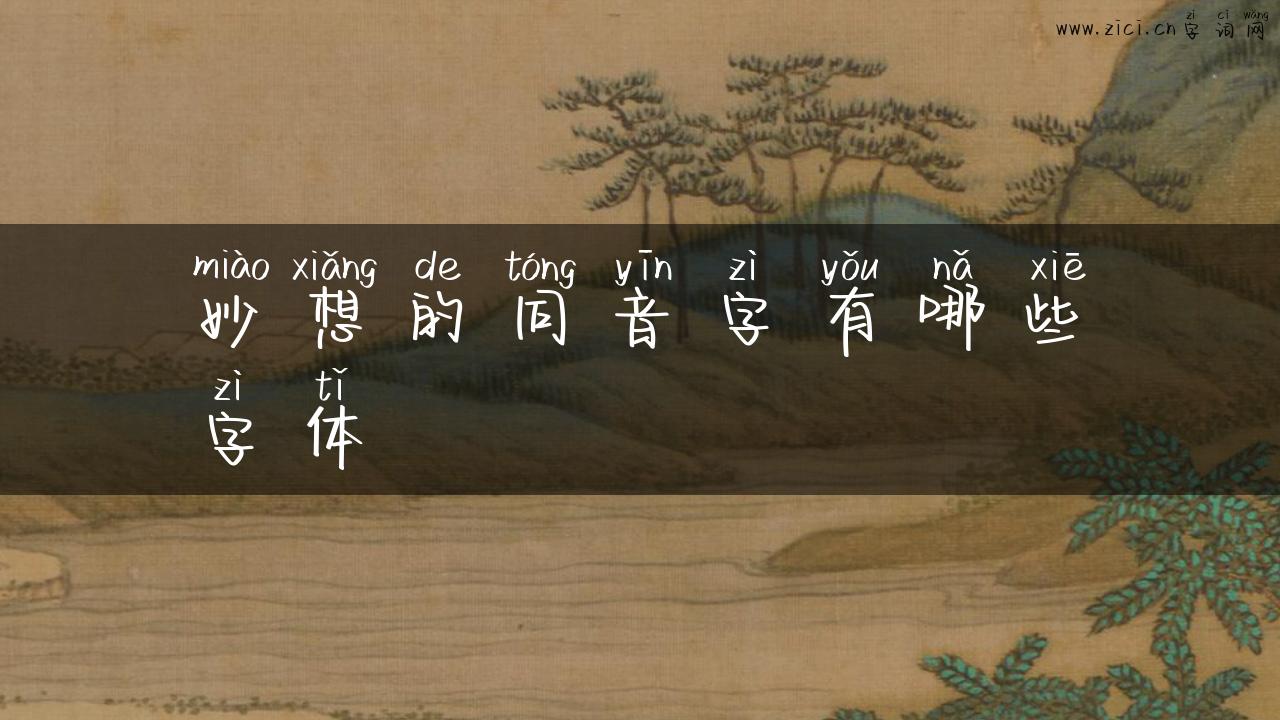 zì cí wǎng
www.zici.cn 字 词 网
miào xiǎng de tóng yīn zì yǒu nǎ xiē
妙 想 的 同 音 字 有 哪 些
zì tǐ
字 体